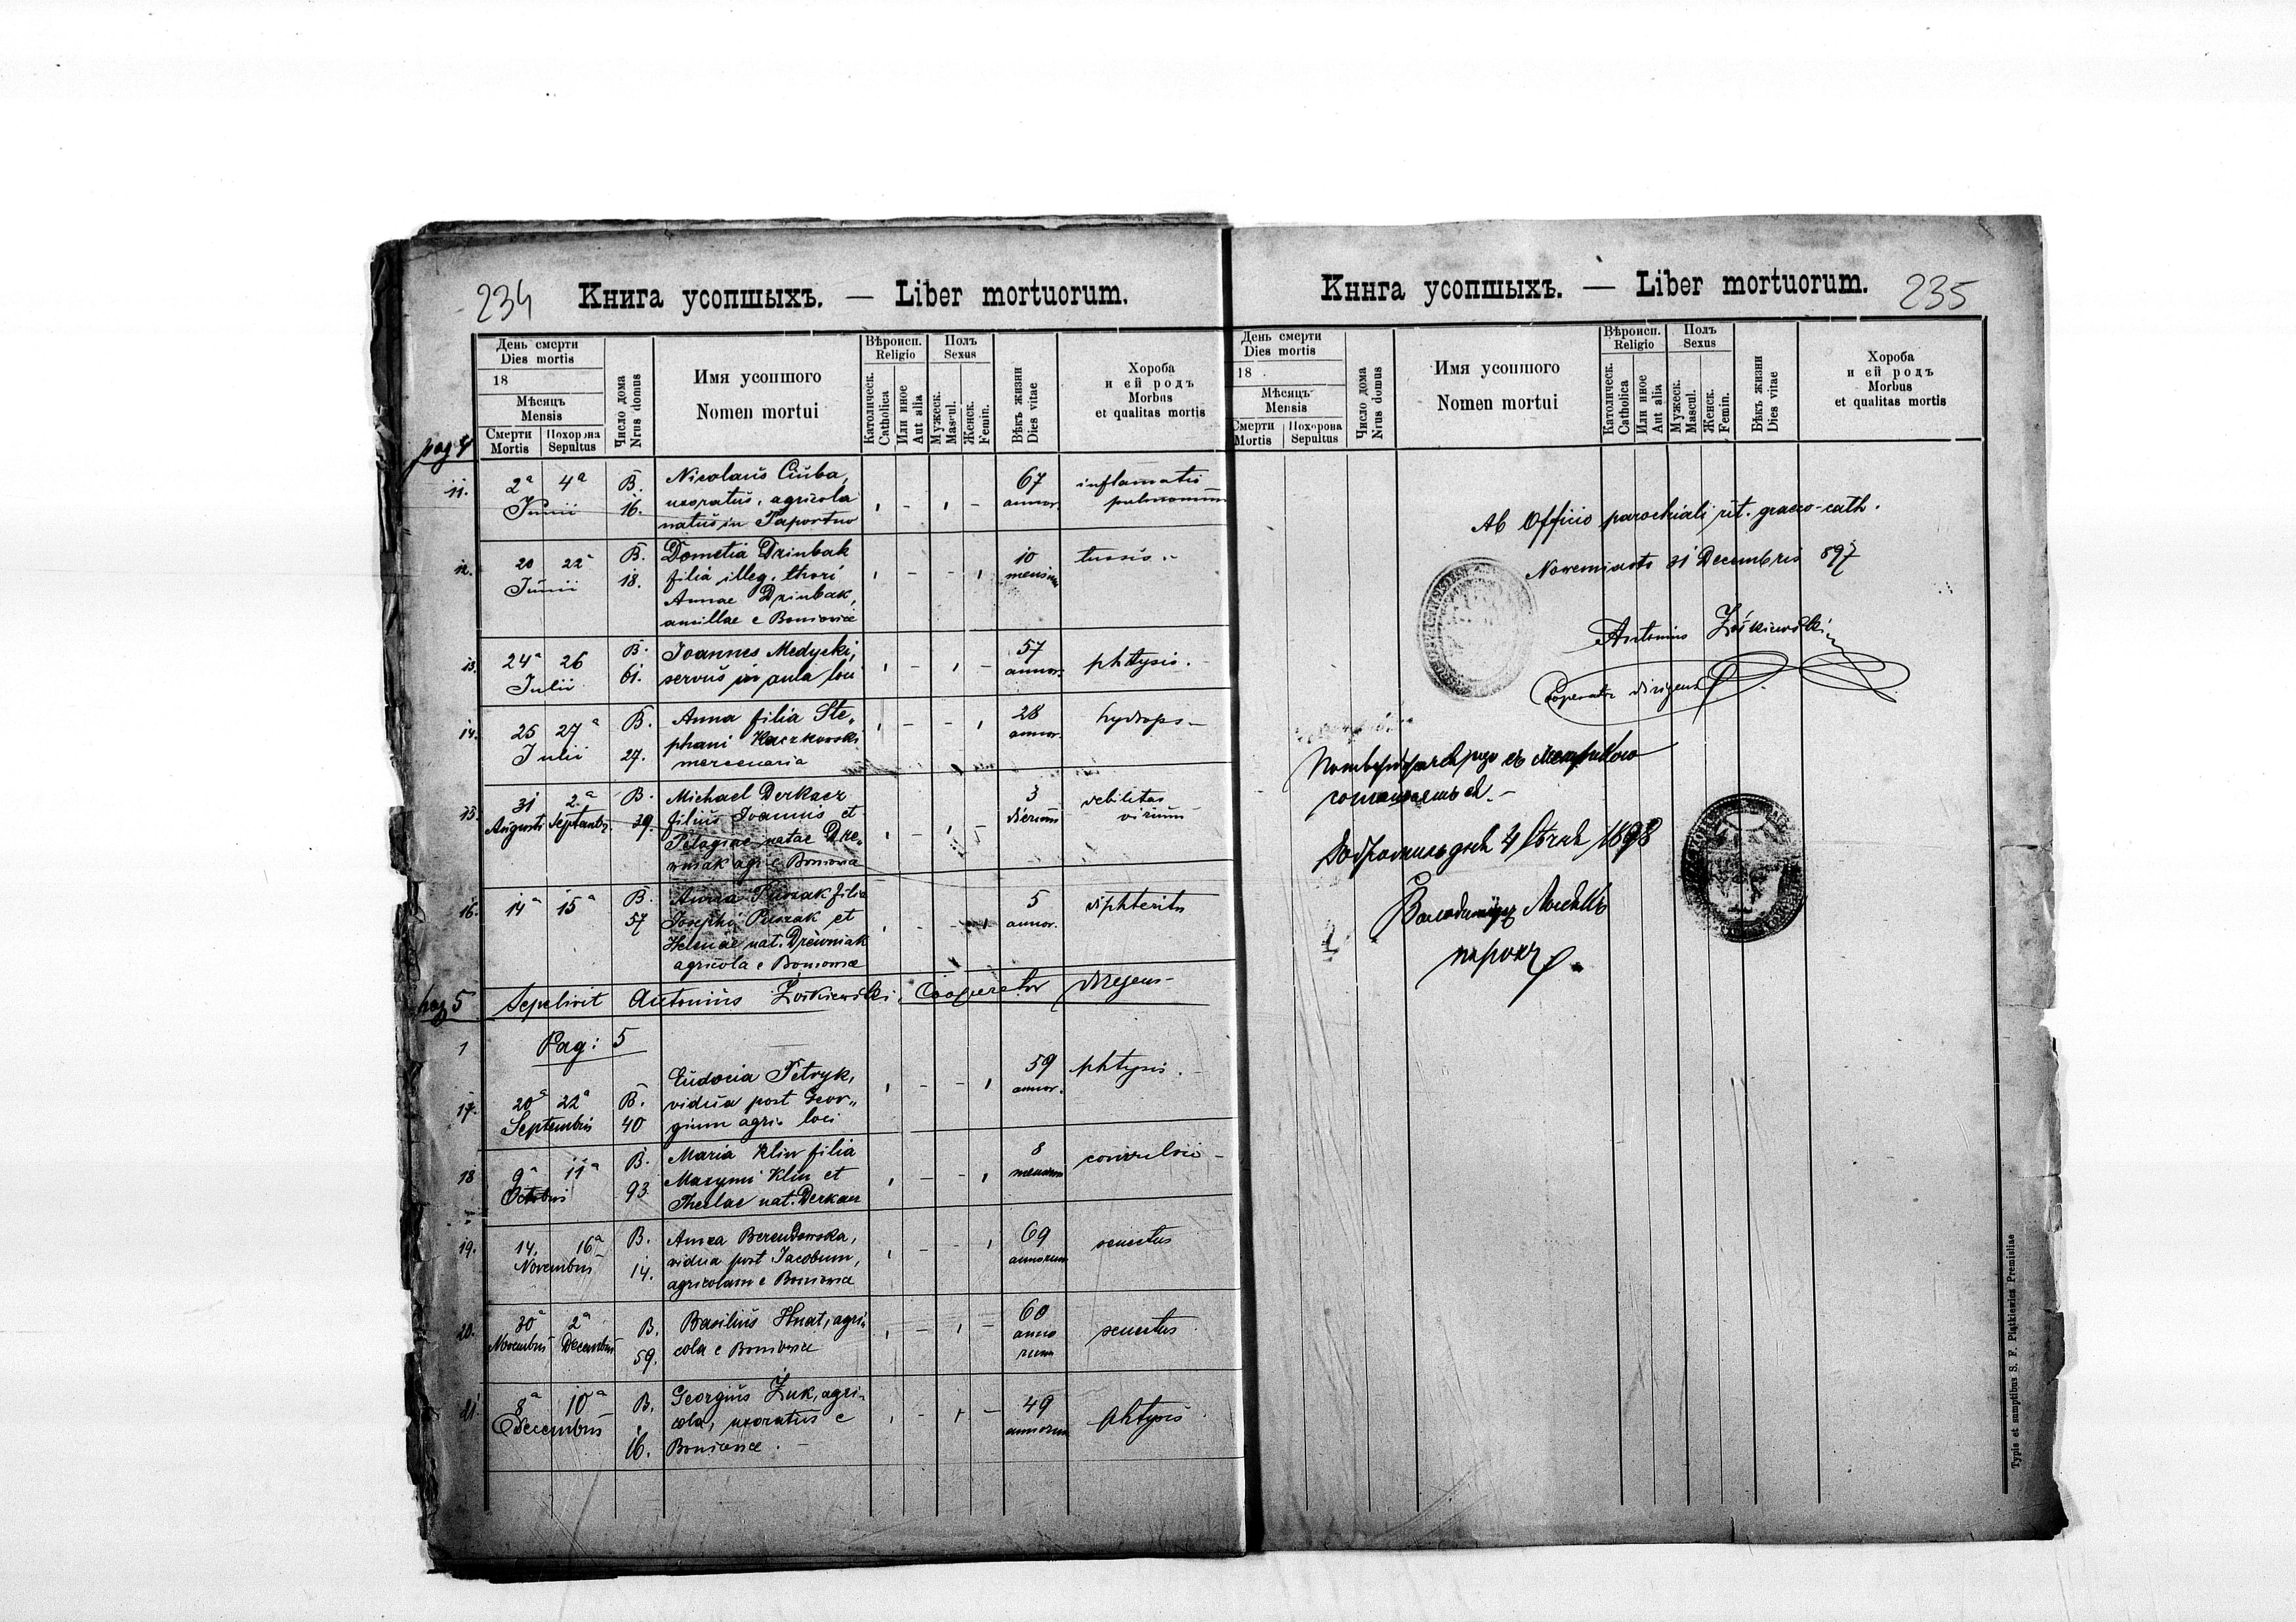 234
Книга усопшыхъ. — Liber mortuorum.
День смерти
Dies mortis
18
Мѣсяцъ
Mensis
Смерти
Mortis
Похорона
Sepultus
Число дома
Nrus domus
Имя усопшого
Nomen mortui
Вѣроисп.
Religio
Католическ.
Catholica
Или иное
Aut alia
Полъ
Sexus
Мужеск.
Mascul.
Женск.
Femin.
Вѣкъ жизни
Dies vitae
Хороба
и ей родъ
Morbus
et qualitas mortis
pag 4
11. 2a 4a Junii B. 16.
Nicolaus Ciuba,
uxoratus, agricola
natus in Paportno
67 annor.
inflamatio
pulmonum
12. 20 22a Junii B. 18.
Dometia Drinbak
filia illeg. thori
Annae Drinbak,
ancillae e Boniowice
10 mensium
tussis.
13. 24a 26 Julii B. 61.
Joannes Medycki,
servus in aula loci
57 annor.
phtysis.
14. 25 27a Julii B. 27.
Anna filia Ste„
phani Kaczkowski
mercenaria
28 annor.
hydrops
15. 31 Augusti 2a Septembr. B. 39.
Michael Derkacz
filius Joannis et
Pelagiae natae Dre„
wniak agr. e Boniowice
3 dierum
debilitas
virium
16. 14a 15a B. 57
Anna Puszak filia
Josephi Puszak et
Helenae nat. Drewniak
agricola e Boniowice
5 annor.
diphteritis
pag 5 Sepelivit Antonius Żośkiewski, Cooperator dirigens
1 Pag: 5
17. 20a 22a Septembris B. 40
Eudocia Petryk,
vidua post Geor„
gium agri. loci
59 annor.
phtysis.
18 9a 11a Octobris B. 93
Maria Klin filia
Maxymi Klin et
Theclae nat. Derkacz
8 mensium
convulsio
19. 14. 16a Novembris B. 14.
Anna Berendowska,
vidua post Jacobum,
agricolam e Boniowice
69 annorum
senectus
20. 30a Novembris 2a Decembris B. 59.
Basilius Hnat, agri„
cola e Boniowice
60 anno
rum
senectus
21. 8a 10a Decembris B. 16.
Georgius Żuk, agri„
cola, uxoratus e
Boniowice.
49 annorum
phtysis
Кннга усопшыхъ. — Liber mortuorum.
235
День смерти
Dies mortis
18
Мѣсяцъ
Mensis
Смерти
Mortis
Похорона
Sepultus
Число дома
Nrus domus
Имя усопшого
Nomen mortui
Вѣроисп.
Religio
Католическ.
Catholica
Или иное
Aut alia
Полъ
Sexus
Мужеск.
Mascul.
Женск.
Femin.
Вѣкъ жизни
Dies vitae
Хороба
и ей родъ
Morbus
et qualitas mortis
Ab Officio parochiali rit. graeco-cath.
Nowemiasto 31 Decembris 897
Antonius Żośkiewski
Cooperator dirigens
Добромиль дня 4 1898
Володимиръ
парохъ
Typis et sumptibus S. F. Piątkiewicz Premisliae